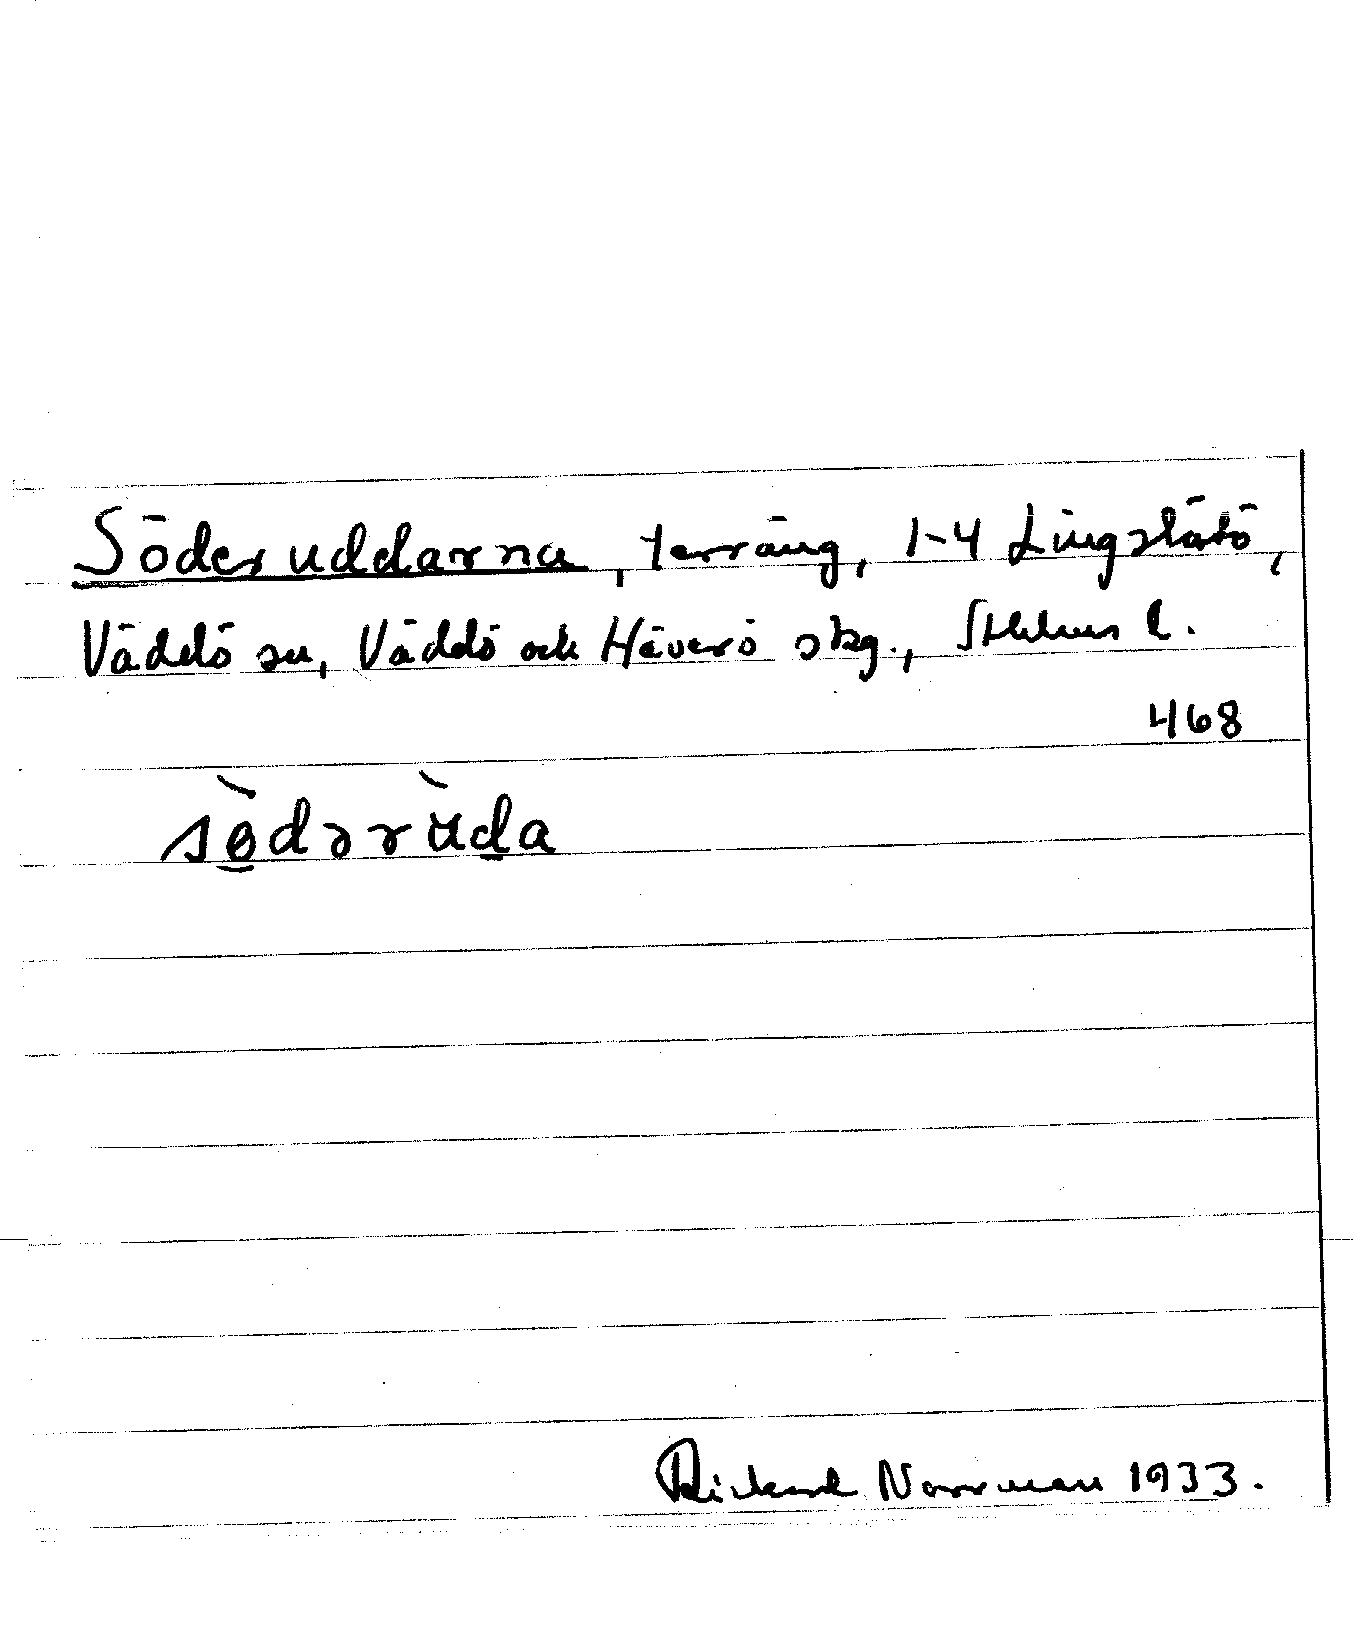 Söderuddarna, terräng, 1-4 Lingslätö,
Väddö sn, Väddö och Häverö skg., Sthlms l.
468
sø̀dərùda
Rickard Norrman 1933.